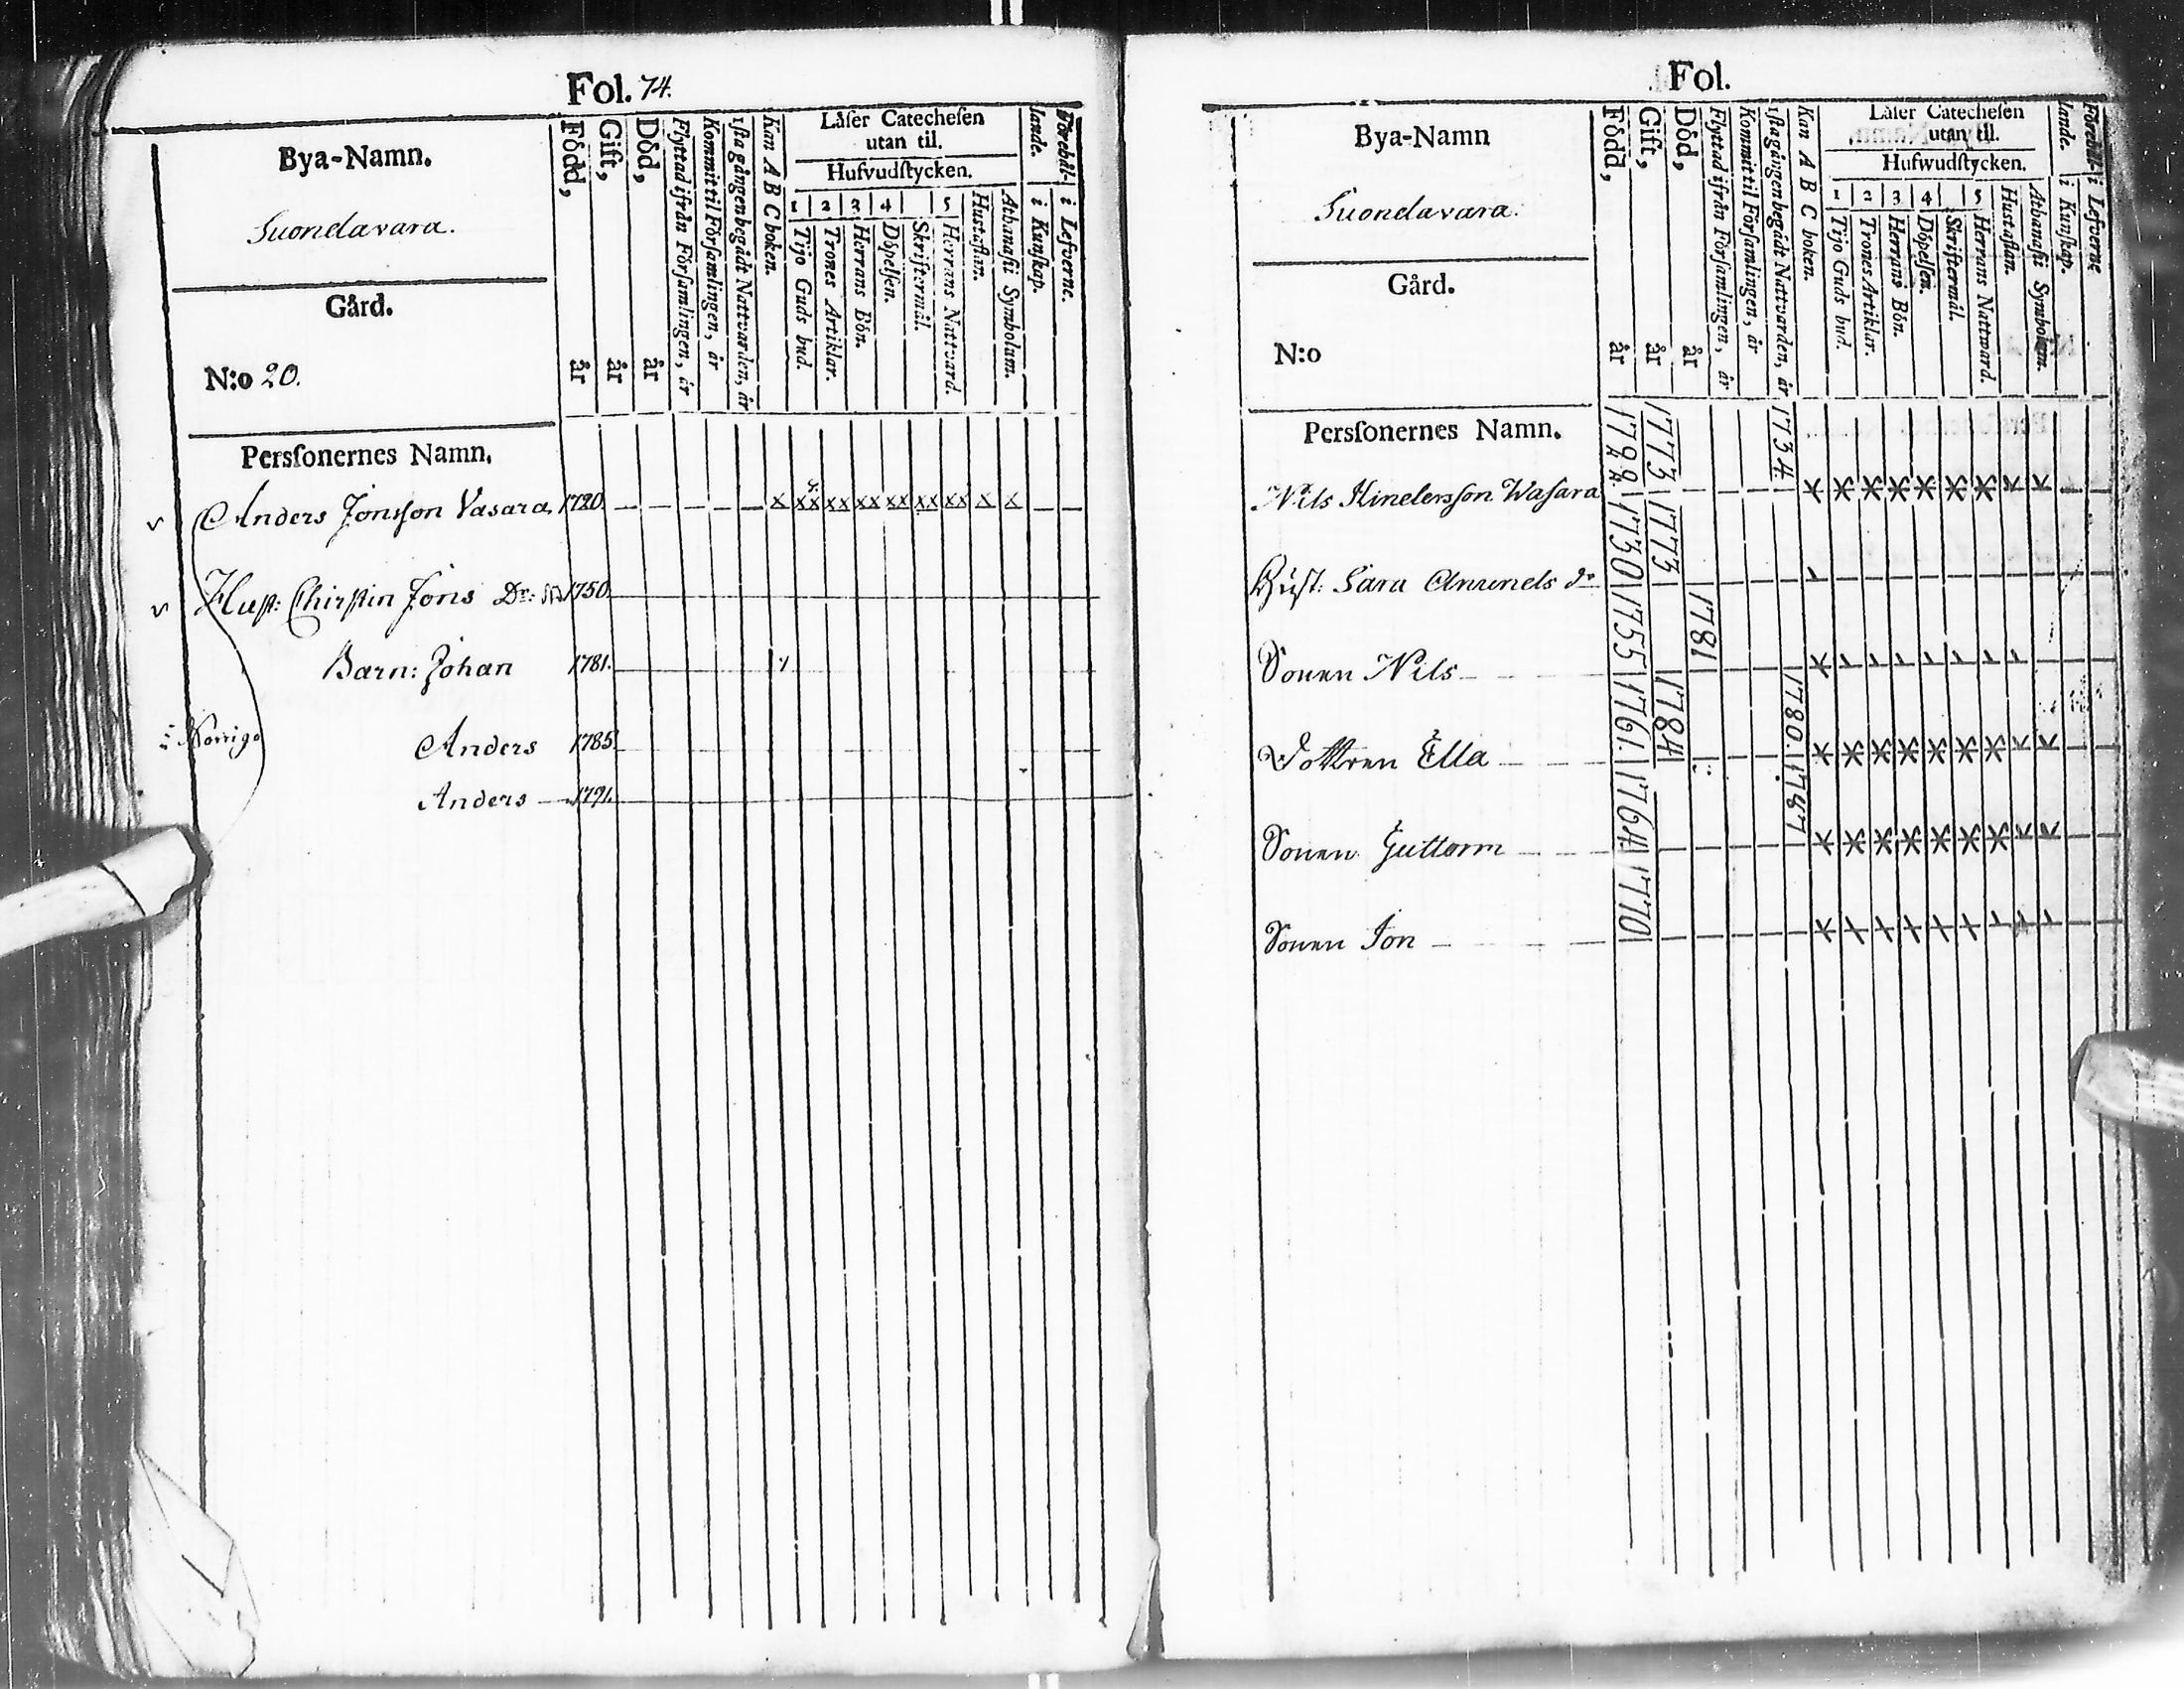 Fol. 74.
Bya-Namn.
Suondavara.
Gård.
N:o 20.
Född, år
Gift, år
Död, år
Flyttad ifrån Församlingen, år
Kommit til Församlingen, år
1sta gången begådt Nattvarden, år
Kan A B C boken.
Läser Catechesen
utan til.
Hufvudstycken.
1 2 3 4 5
Tijo Guds bud.
Trones Artiklar.
Herrans Bön.
Döpelsen.
Skriftermål.
Herrans Nattvard.
Hustaflan.
Athanasii Symbolum.
Förehål-
lande.
i Kunskap.
i Lefverne.
Personernes Namn.
Anders Jonsson Vasara 1720.
Hust: Chirstin Jons Dr: 1750.
Barn: Johan 1781.
i Norrige
Anders 1785
Anders 1791.
Fol.
Bya-Namn
Suondavara.
Gård.
N:o
Född, år
Gift, år
Död, år
Flyttad ifrån Församlingen, år
Kommit til Församlingen, år
1sta gången begådt Nattvarden, år
Kan A B C boken.
Läser Catechesen
utan til.
Hufwudstycken.
1 2 3 4 5
Tijo Guds bud.
Trones Artiklar.
Herrans Bön.
Döpelsen.
Skriftermål.
Herrans Nattward.
Hustaflan.
Athanasii Symbolum.
Förehål-
lande.
i Kunskap.
i Lefverne
Personernes Namn.
Nils Wasara 1773 1734
Hust: Sara dr 1730 1773
Sonen Nils 1755 1781
Dottren Ella 1761. 1784 1780.
Sonen Guttorm 1764 1787
Sonen Jon 1770